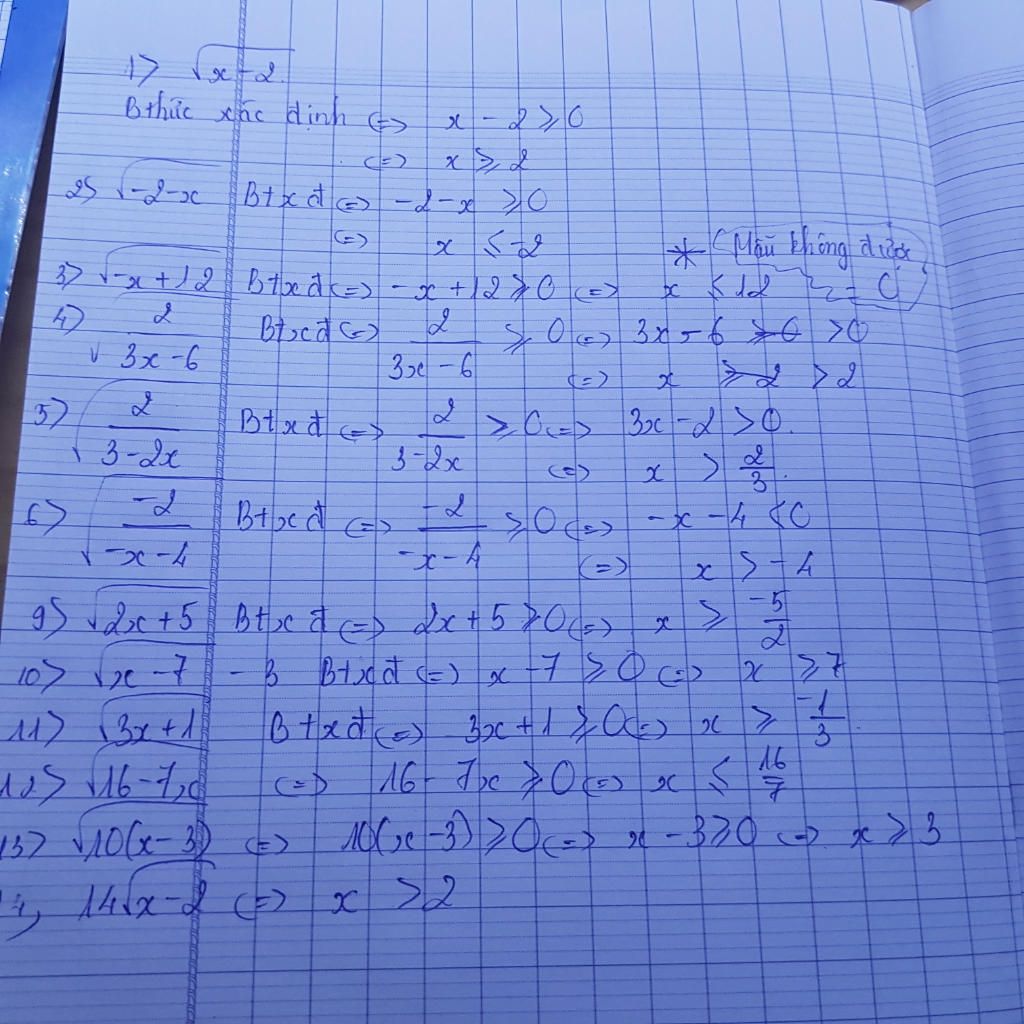 1> √x-2
Bthức xác định <=> x - 2 ≥ 0
<=> x ≥ 2
2> √-2-x Btxđ <=> -2-x ≥ 0
<=> x ≤ -2 * (Mẫu không được
3> √-x+12 Btxđ <=> -x+12 ≥ 0 <=> x ≤ 12 = 0)
4> √2/3x-6 Btxđ <=> 2/3x-6 ≥ 0 <=> 3x-6 ≥ 0 > 0
<=> x ≥ 2 > 2
5> √2/3-2x Btxđ <=> 2/3-2x ≥ 0 <=> 3x-2 > 0.
<=> x > 2/3.
6> √-2/-x-4 Btxđ <=> -2/-x-4 ≥ 0 <=> -x-4 < 0
<=> x > -4
9> √2x+5 Btxđ <=> 2x+5 ≥ 0 <=> x ≥ -5/2
10> √x-7 - 3 Btxđ <=> x-7 ≥ 0 <=> x ≥ 7
11> √3x+1 Btxđ <=> 3x+1 ≥ 0 <=> x ≥ -1/3.
12> √16-7x <=> 16-7x ≥ 0 <=> x ≤ 16/7
13> √10(x-3) <=> 10(x-3) ≥ 0 <=> x-3 ≥ 0 <=> x ≥ 3
14, 14√x-2 <=> x > 2